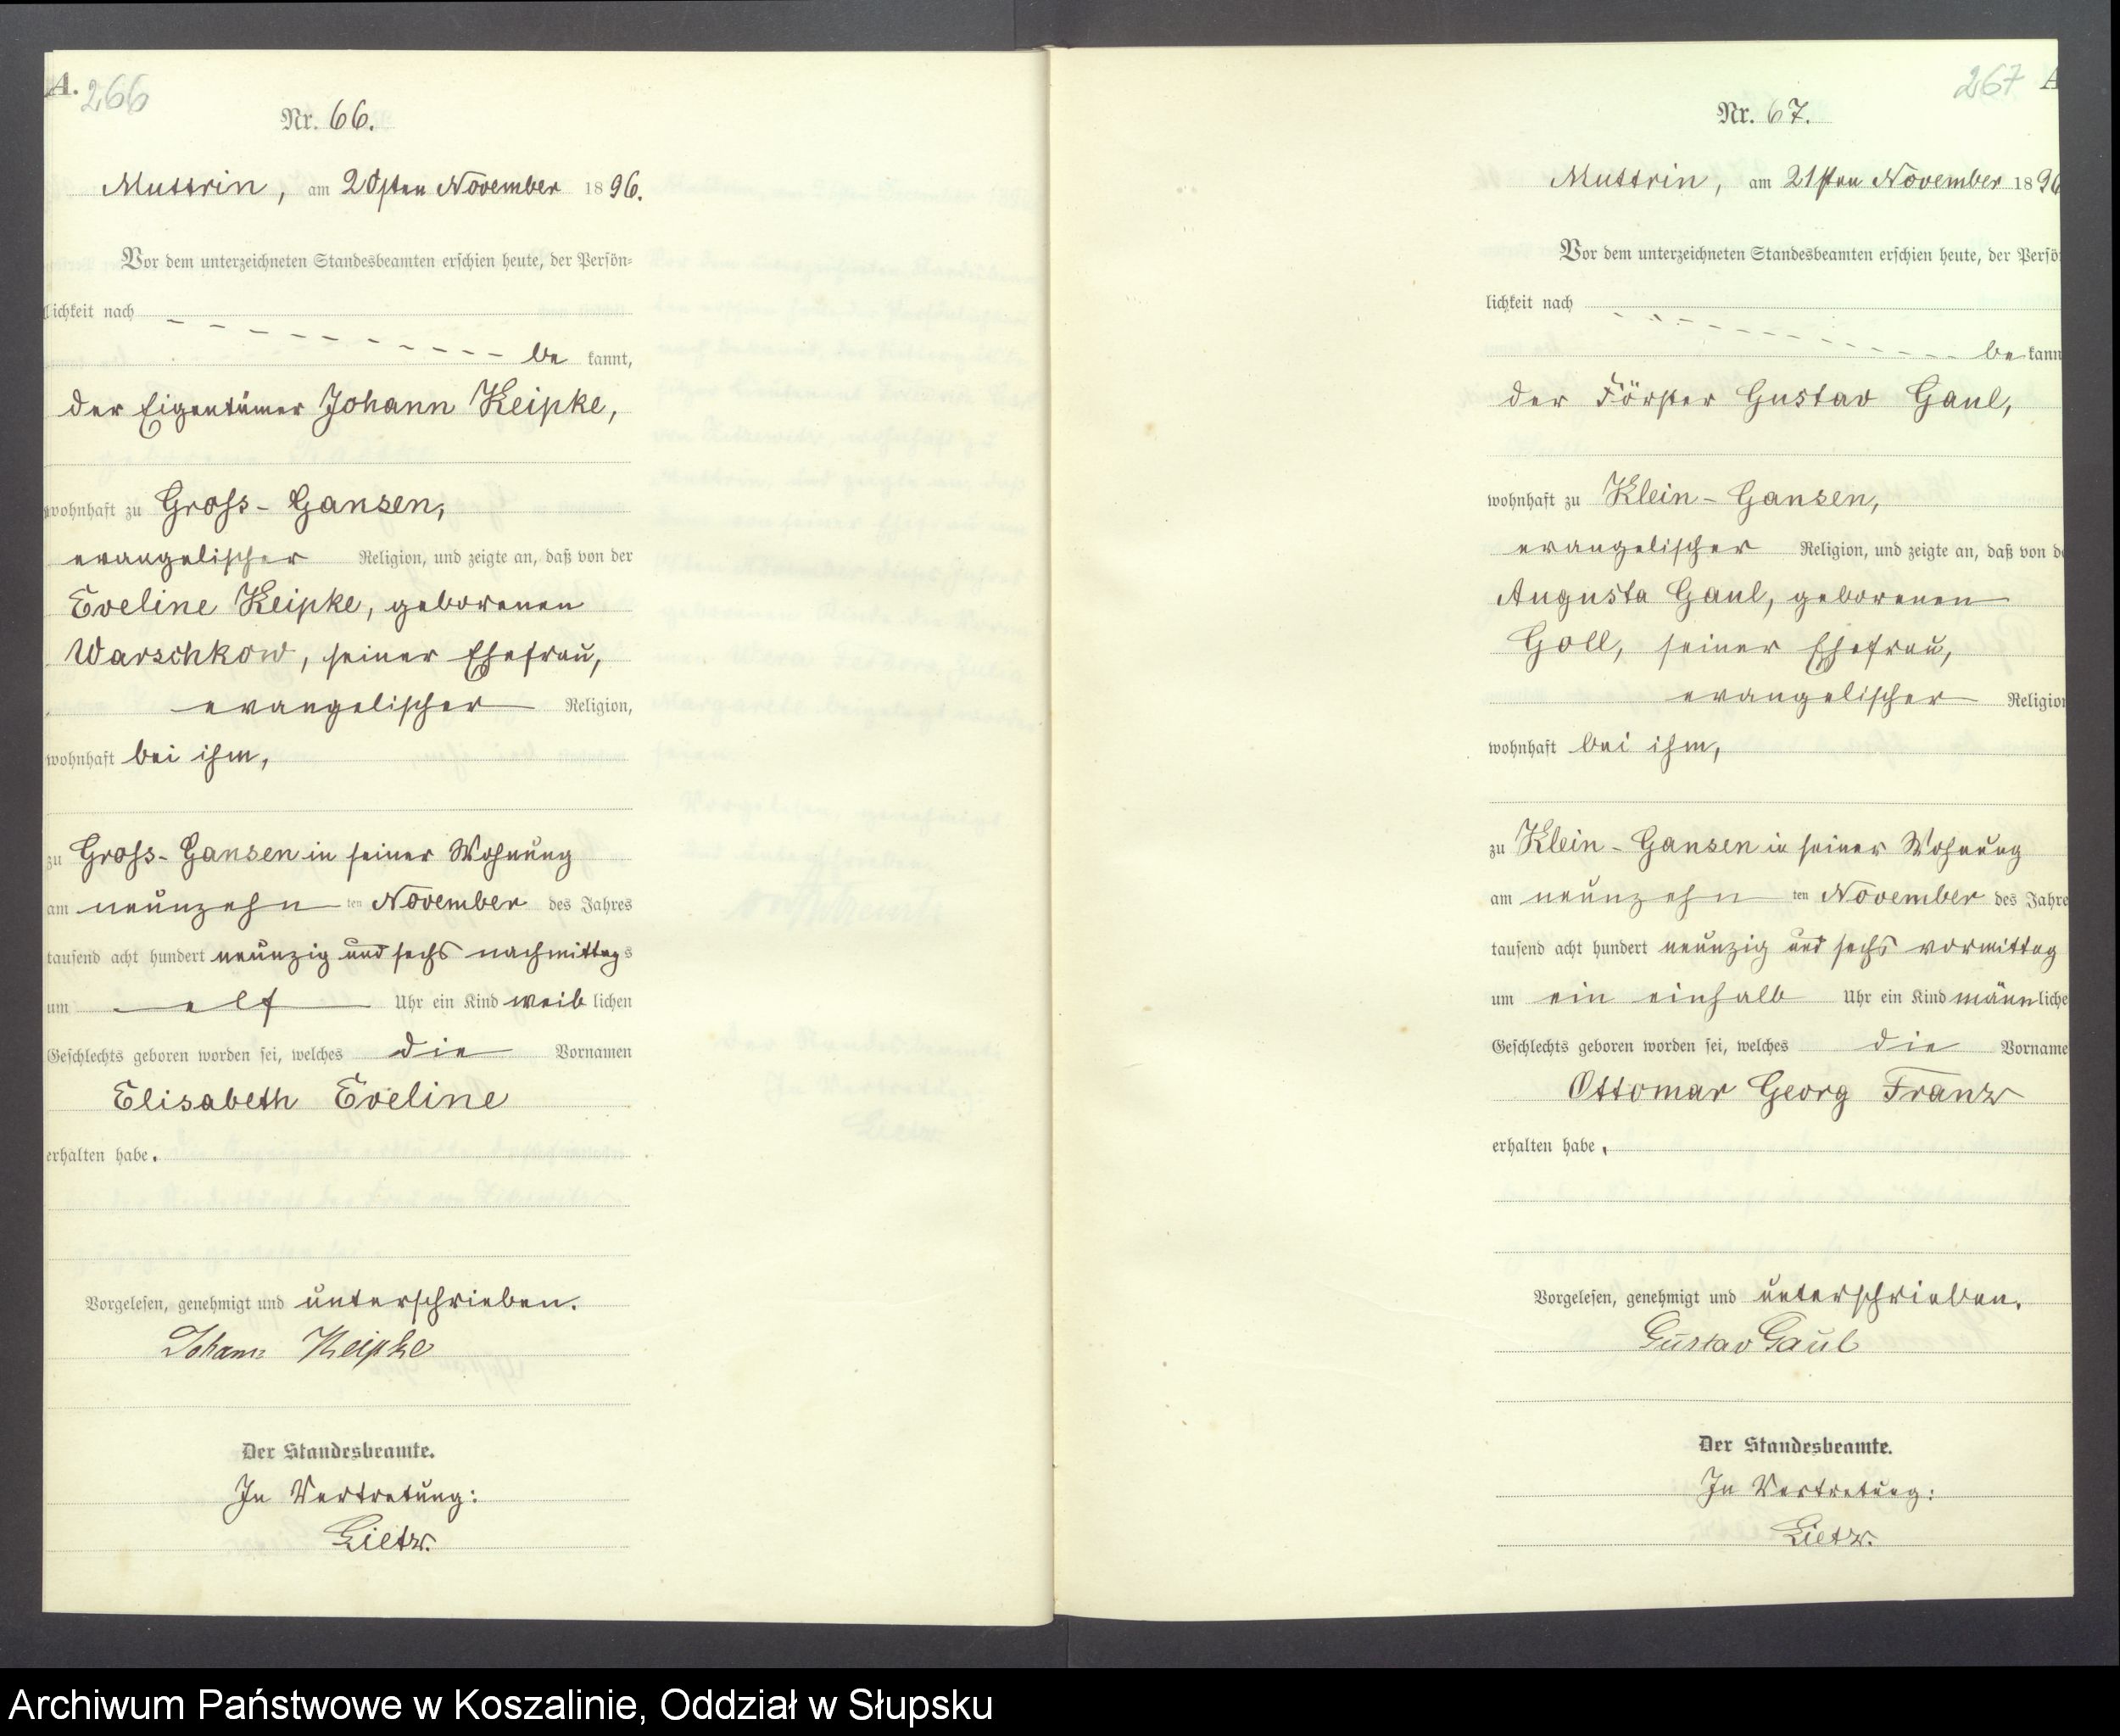 A. 266
Nr. 66.
Muttrin, am 20sten November 1896.
Vor dem unterzeichneten Standesbeamten erschien heute, der Persön=
lichkeit nach
be kannt,
der Eigentümer Johann Keipke,
wohnhaft zu Gross-Gansen,
evangelischer Religion, und zeigte an, daß von der
Eveline Keipke, geborenen
Warschkow, seiner Ehefrau,
evangelischer Religion,
wohnhaft bei ihm,
zu Gross-Gansen in seiner Wohnung
am neunzehn ten November des Jahres
tausend acht hundert neunzig und sechs nachmittags
um elf Uhr ein Kind weib lichen
Geschlechts geboren worden sei, welches die Vornamen
Elisabeth Eveline
erhalten habe.
Vorgelesen, genehmigt und unterschrieben.
Johann Keipke
Der Standesbeamte.
In Vertretung:
Lietz.
267 A
Nr. 67.
Muttrin, am 21sten November 1896
Vor dem unterzeichneten Standesbeamten erschien heute, der Persö
lichkeit nach
be kann
der Förster Gustav Gaul,
wohnhaft zu Klein-Gansen,
evangelischer Religion, und zeigte an, daß von de
Augusta Gaul, geborenen
Goll, seiner Ehefrau,
evangelischer Religion
wohnhaft bei ihm,
zu Klein-Gansen in seiner Wohnung
am neunzehn ten November des Jahre
tausend acht hundert neunzig und sechs vormittag
um ein einhalb Uhr ein Kind männ liche
Geschlechts geboren worden sei, welches die Vorname
Ottomar Georg Franz
erhalten habe.
Vorgelesen, genehmigt und unterschrieben.
Gustav Gaul
Der Standesbeamte.
In Vertretung:
Lietz.
Archiwum Państwowe w Koszalinie, Oddział w Słupsku